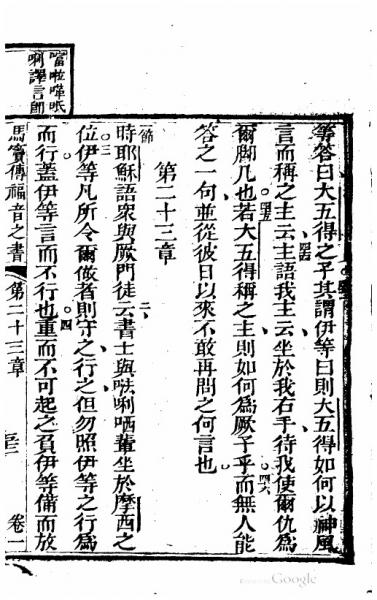 等答曰大五得之子其謂伊等曰則大五得如何以神風
四四
言而稱之主云主語我主云坐於我右手待我使爾仇為
四五
四六
爾脚几也若大五得稱之主則如何為厥子乎而無人能
答之一句並從彼日以來不敢再問之何言也
第二十三章
一節
二
時耶穌語眾與厥門徒云書士與唎哂輩坐於摩西之
三
位伊等凡所令爾做者則守之行之但勿照伊等之行為
四
而行蓋伊等言而不行也重而不可起之負伊等備而放
馬竇傳福音之書 第二十三章 卷一
唎譯言
Google